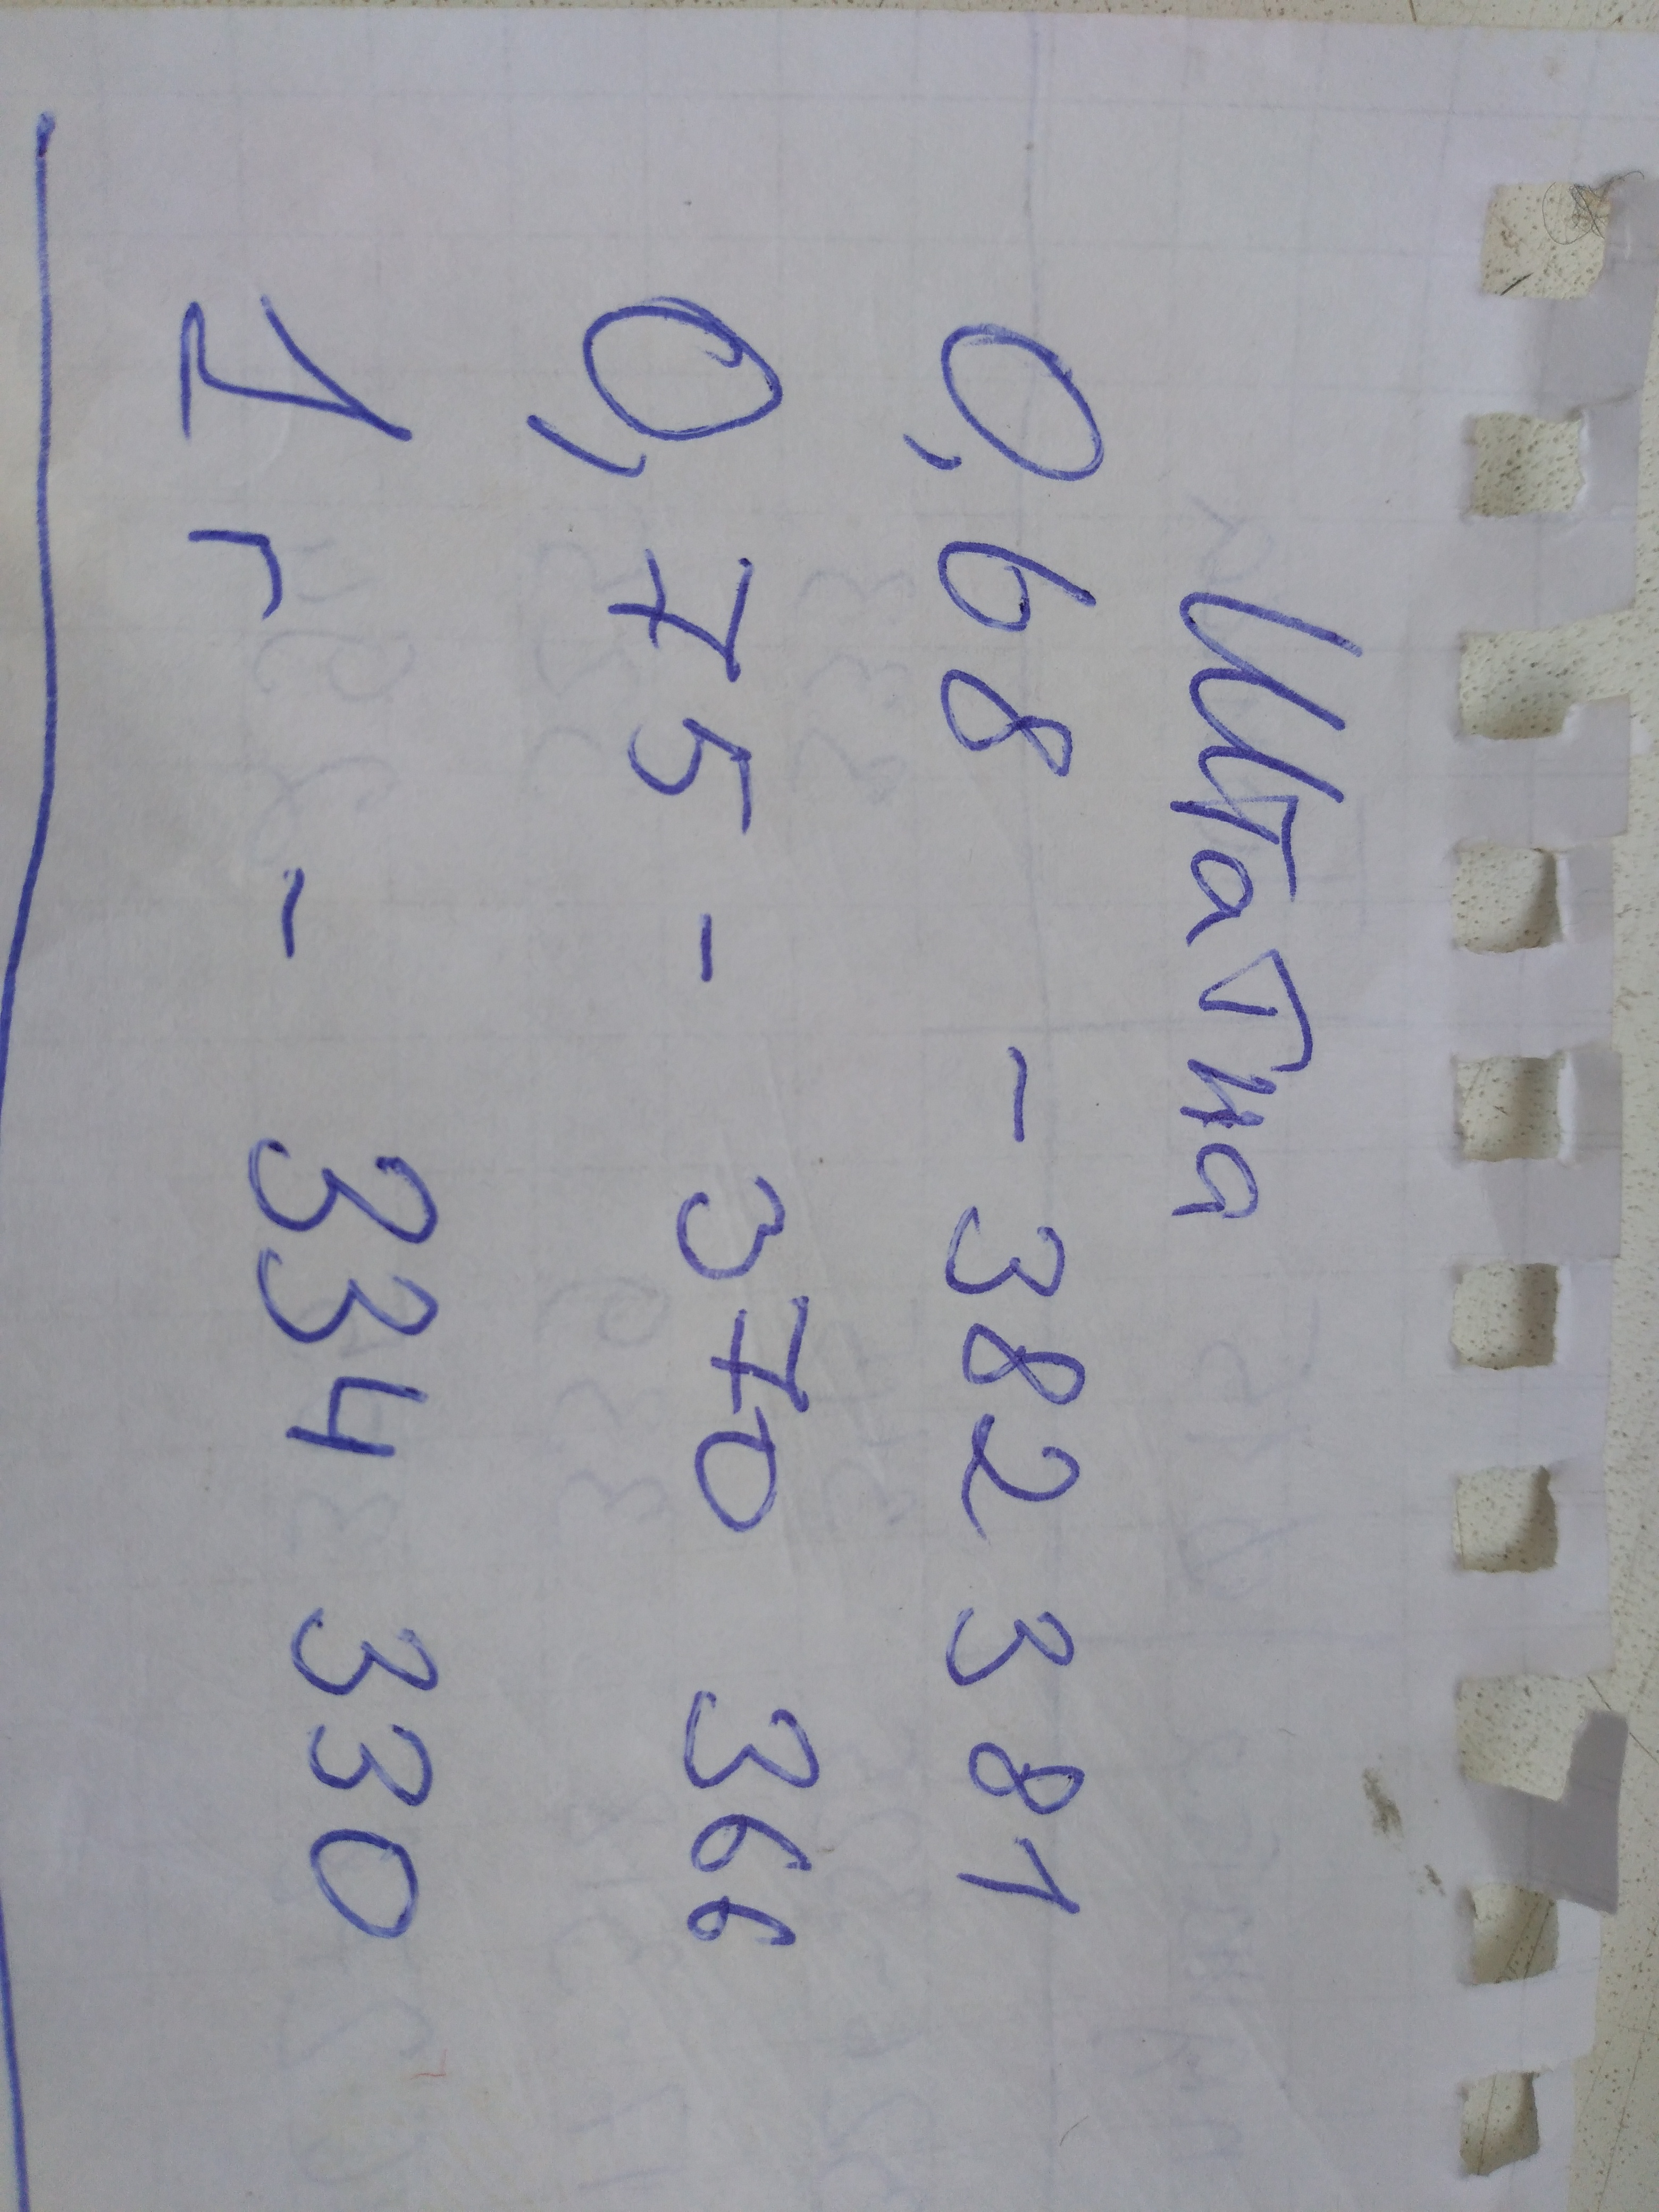 Шатна
0,68 - 382 381
0,75 - 370 366
1 г - 334 330